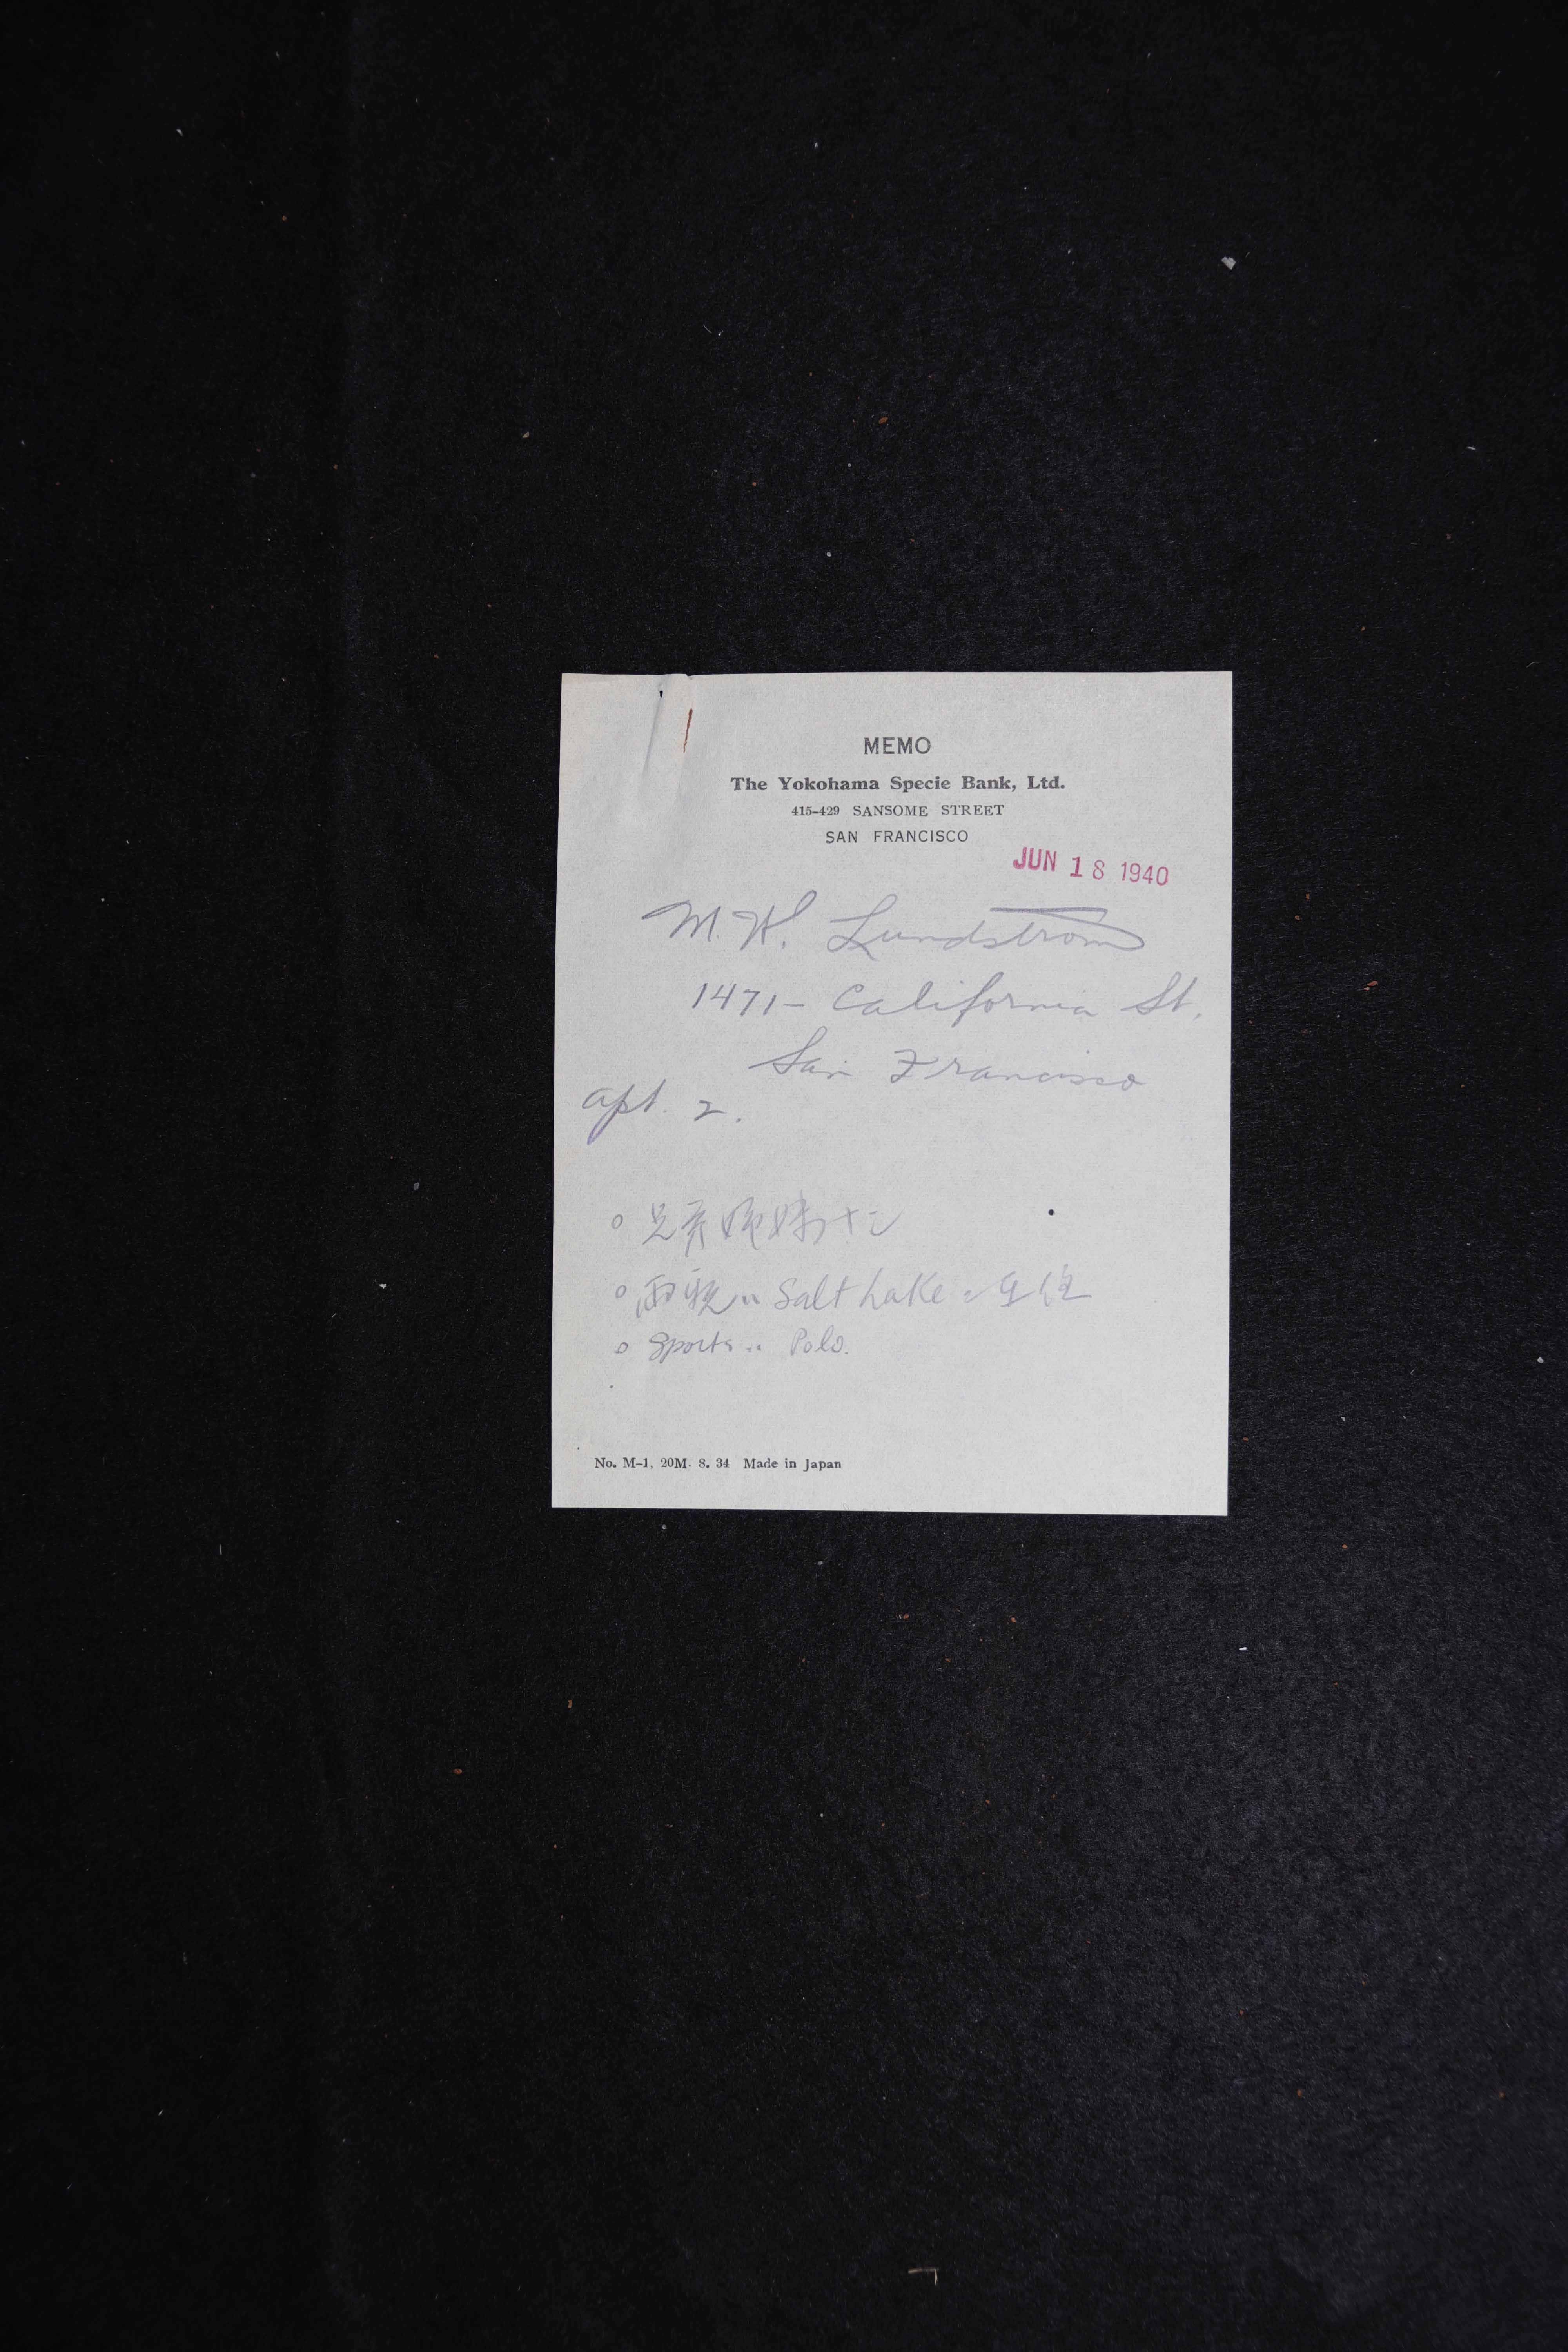 MEMO
The Yokohama Specie Bank, Ltd.
415-429 SANSOME STREET
SAN FRANCISCO
JUN 18 1940
M. H. Lundstrom
1471- California St.
San Francisco
apt. 2.
○ 兄弟姉妹ナシ
○ 両親ハ Salt Lake ニ在住
○ Sports ハ Polo.
No. M-1, 20M. 8. 34 Made in Japan